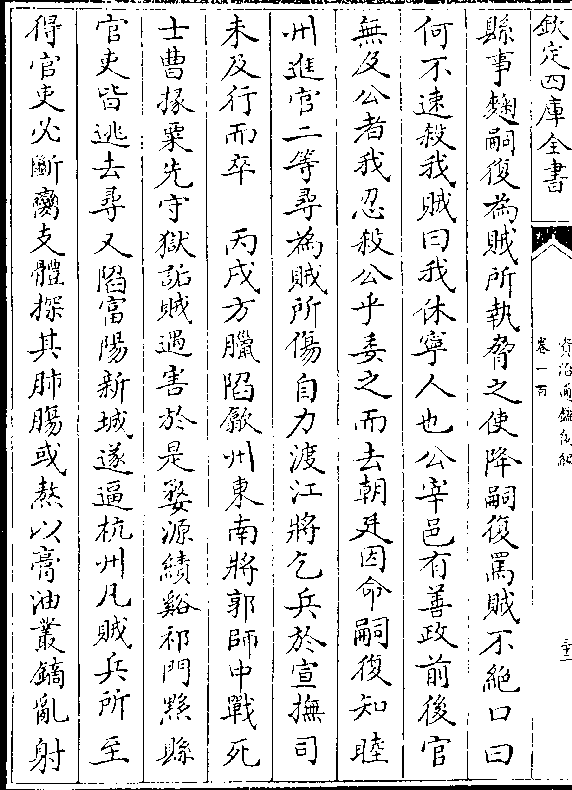 欽定四庫全書
資治通鑑後編
卷一百
三十二
縣事麴嗣復為賊所執脅之使降嗣復罵賊不絶口曰
何不速殺我賊曰我休寧人也公宰邑有善政前後官
無及公者我忍殺公乎委之而去朝廷因命嗣復知睦
州進官二等尋為賊所傷自力渡江將乞兵於宣撫司
未及行而卒　丙戌方臘陷歙州東南將郭師中戰死
士曹掾栗先守獄詬賊遇害於是婺源績谿祁門黟縣
官吏皆逃去尋又陷富陽新城遂逼杭州凡賊兵所至
得官吏必斷臠支體探其肺腸或熬以膏油叢鏑亂射